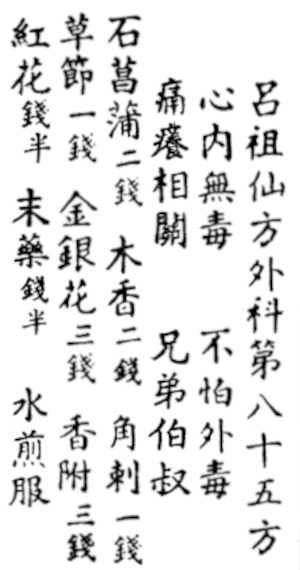 呂祖仙方外科第八十五方
心內無毒 不怕外毒
痛癢相關 兄弟伯叔
石菖蒲二錢 木香二錢 角刺一錢
草節一錢 金銀花三錢 香附三錢
紅花錢半 末藥錢半 水煎服